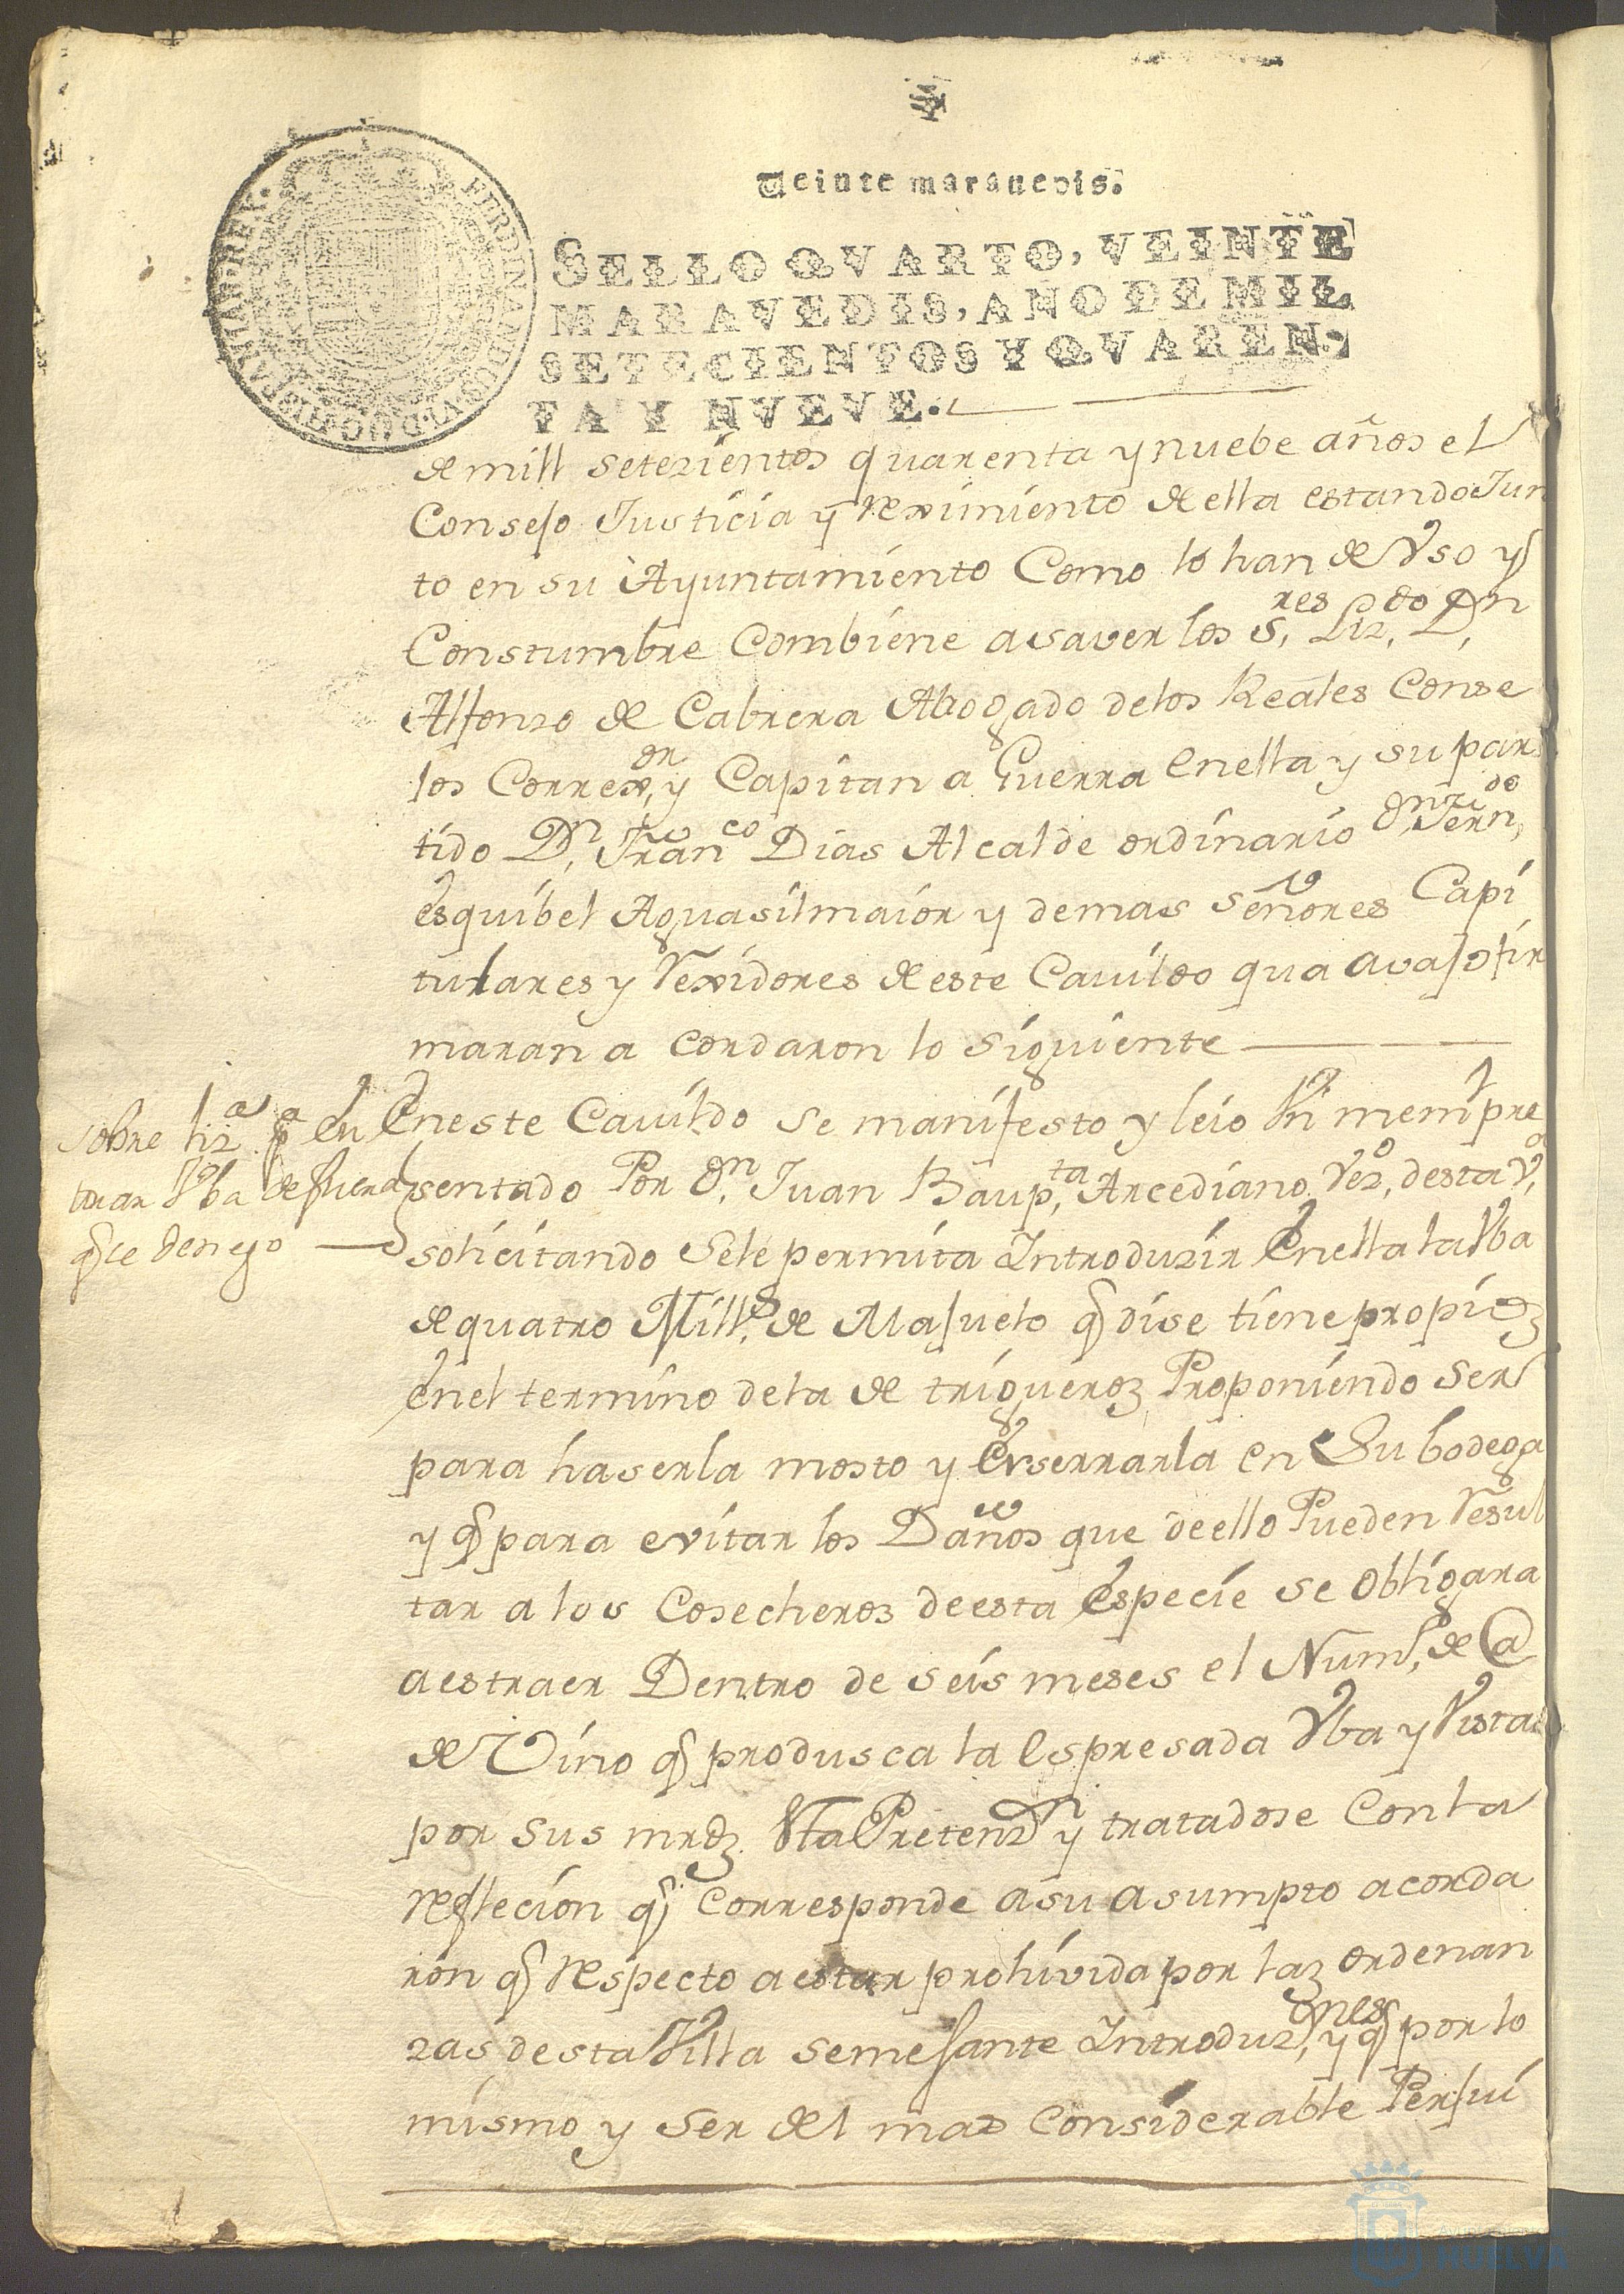 Veinte marauedis.
SELLO QVARTO, VEINTE
MARAVEDIS, AÑO DE MIL
SETECIENTOS Y QVAREN-
TA Y NVEVE.
FERDINANDUS VI D G HISPANIAR REX
de mill setezientos quarenta y nuebe años el
Consejo Justicia y reximiento de ella estando Jun
to en su Ayuntamiento Como lo han de Vso y
Constumbre Combiene a saver los S.res Liz.do D.n
Alfonso de Cabrera Abogado de los Reales Conse
jos Correx.or y Capitan a Guerra en ella y su par
tido D.n Fran.co Dias Alcalde ordinario D.n Fern.do
esquibel Aguasil maior y demas señores Capi
tulares y Rexidores de este Cauildo qua avajo fir
maran a cordaron lo siguiente
sobre liz.a p.a en
trar Vba de fuera
q se denego
En este Cauildo se manifesto y leio Vn mem.l pre
sentado Por D.n Juan Baup.ta Arcediano Vez.o desta V.a
solicitando Se le permita Introduzir En ella la Vba
de quatro Mill.s de Majuelo q dise tiene propios
en el termino de la de trigueros Proponiendo Ser
para haserla mosto y Enserrarla en Su bodega
y q para evitar los Daños que de ello Pueden Resul
tar a los Cosecheros de esta Especie se obligara
a estraer Dentro de seis meses el Num.o de @
de Vino q produsca la Espresada Vba y Vista
por sus mrds Vta Pretenz.n y tratadose Con la
reflecion q Corresponde a su asumpto acorda
ron q respecto a estar prohivida por las ordenan
zas desta Villa semejante Introduz.ones y q por lo
mismo y Ser del mas Considerable Perjui
HUELVA